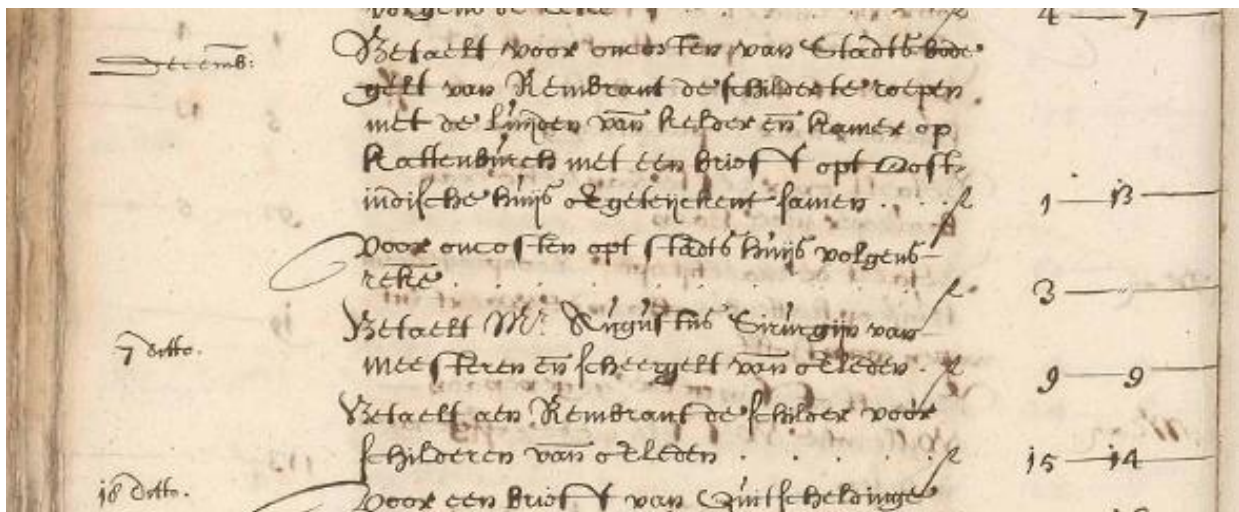 volgens de reke f 4 — 7 —
Decemb: Betaelt voor oncosten van Stadts bode
gelt van Rembrant de schilder te roepen
met de luijden van kelder en kamer op
Kattenburch met een brieff opt Oost
indische huijs geteijckent samen . . . f 1 — 13 —
voor oncosten opt stadts huijs volgens
reke . . . . . . . . . . f 3 — „ —
7 ditto. Betaelt Mr. Augustus Sirurgijn van
meesteren en scheergelt van . f 9 — 9
Betaelt aen Rembrant de schilder voor
schilderen van . . . . . f 15 — 14 —
18 ditto. voor een brieff van Quitscheldinge